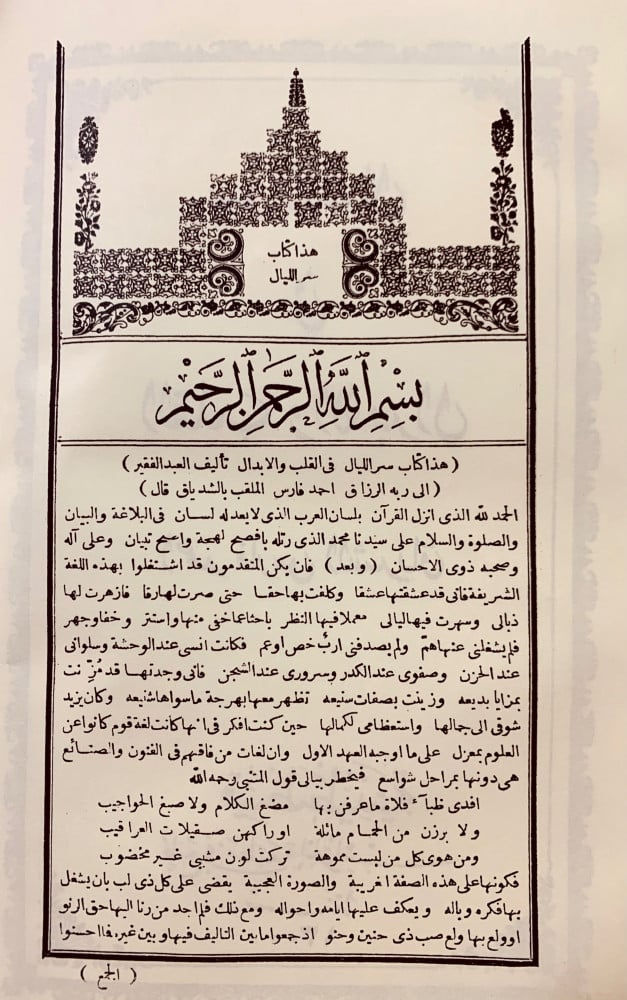 هذا كتاب
سر الليال
بِسْمِ ٱللَّهِ ٱلرَّحْمَٰنِ ٱلرَّحِيمِ
( هذا كتاب سر الليال فى القلب والابدال تأليف العبد الفقير )
( الى ربه الرزاق احمد فارس الملقب بالشدياق قال )
الحمد لله الذى انزل القرآن بلسان العرب الذى لا يعد له لسان فى البلاغة والبيان
والصلوة والسلام على سيدنا محمد الذى رتله بافصح لهجة واسمح تبيان وعلى آله
وصحبه ذوى الاحسان ( وبعد ) فان يكن المتقدمون قد اشتغلوا بهذه اللغة
الشريفة فانى قد عشقتها عشقا وكلفت بها حقا حتى صرت لها رقا فازهرت لها
ذبالى وسهرت فيها ليالى معملا فيها النظر باحثا عما خفى منها واستتر وخفا وجهر
فلم يشغلنى عنها هم ولم يصدفنى ارب خص او عم فكانت انسى عند الوحشة وسلوانى
عند الحزن وصفوى عند الكدر وسرورى عند الشجن فانى وجدتها قد مُزِّنت
بمزايا بديعه وزينت بصفات سنيعه تظهر معها بهرجة ما سواها شنيعه وكان يزيد
شوقى الى جمالها واستعظامى لكمالها حين كنت افكر فى انها كانت لغة قوم كانوا عن
العلوم بمعزل على ما اوجبه العهد الاول وان لغات من فاقهم فى الفنون والصنائع
هى دونها بمراحل شواسع فيخطر ببالى قول المتنبى رحمه الله
افدى ظبآء فلاة ما عرفن بها مضغ الكلام ولا صبغ الحواجيب
ولا برزن من الحمام مائلة اوراكهن صقيلات العراقيب
ومن هوى كل من ليست مموهة تركت لون مشيبى غير مخضوب
فكونها على هذه الصفة الغريبة والصورة العجيبة يقضى على كل ذى لب بان يشغل
بها فكره وباله ويعكف عليها ايامه واحواله ومع ذلك فلم اجد من رنا اليها حق الرنو
او ولع بها ولع صب ذى حنين وحنو اذ جمعوا ما بين التاليف فيها وبين غيره فما احسنوا
( الجمع )